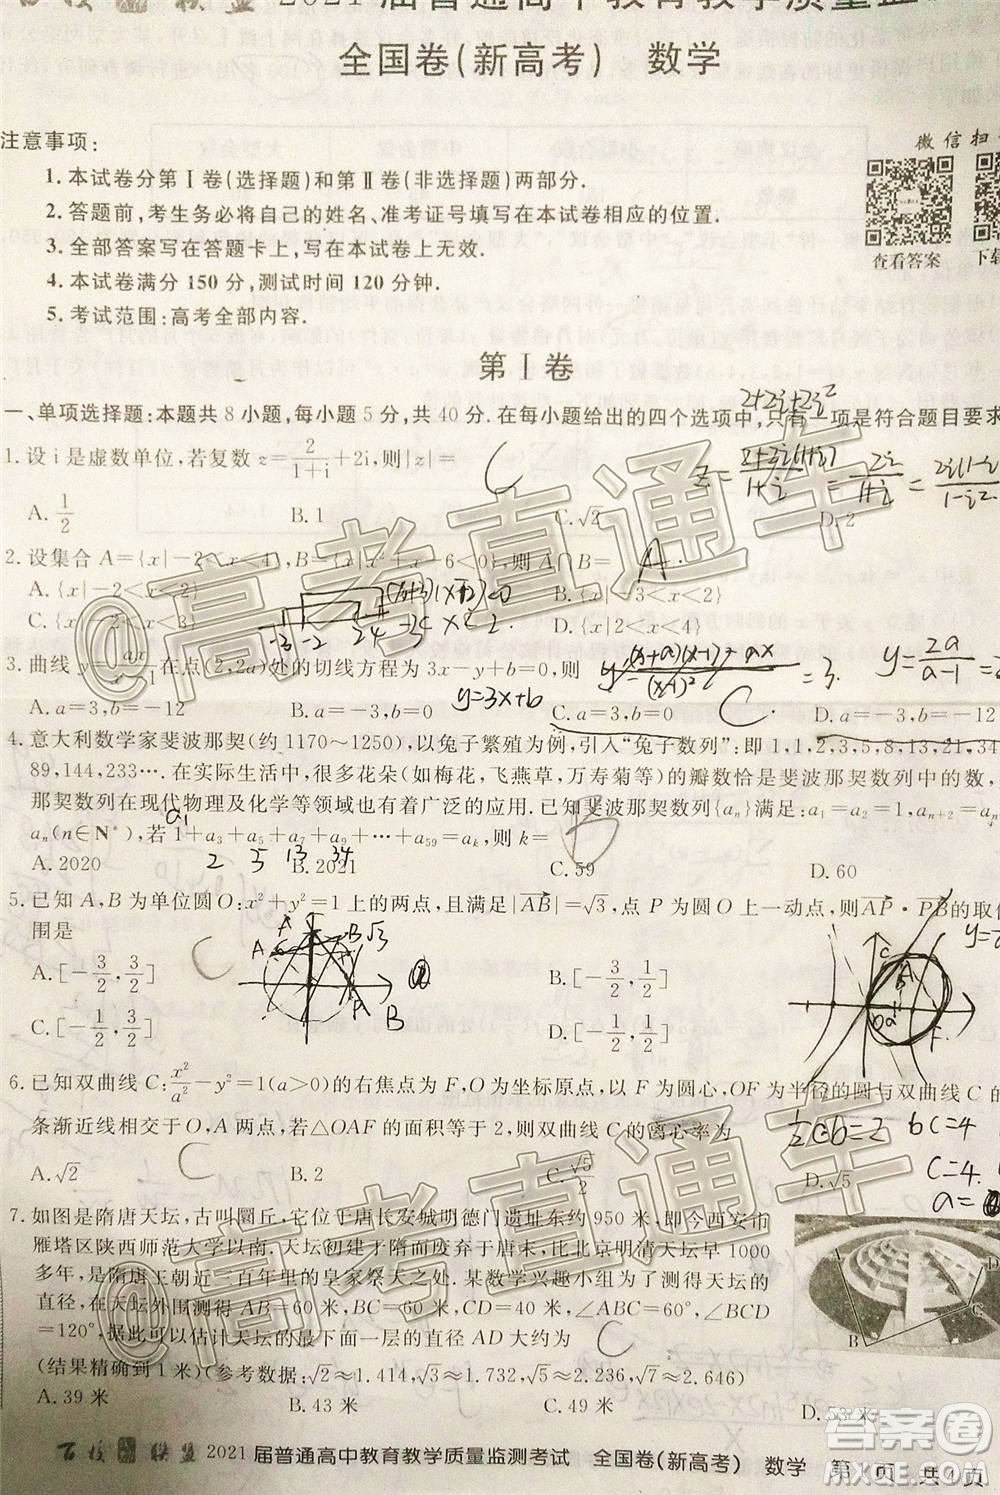 百校联盟2021届普通高中教育教学质量监
全国卷(新高考) 数学
注意事项:
微信扫
1.本试卷分第Ⅰ卷(选择题)和第Ⅱ卷(非选择题)两部分.
2.答题前,考生务必将自己的姓名、准考证号填写在本试卷的相应位置.
3.全部答案写在答题卡上,写在本试卷上无效.
查看答案 下载
4.本试卷满分 150 分,测试时间 120 分钟.
5.考试范围:高考全部内容.
第Ⅰ卷
一、单项选择题:本题共 8 小题,每小题 5 分,共 40 分.在每小题给出的四个选项中,只有一项是符合题目要求
2+2i+2i²
1.设 i 是虚数单位,若复数 z=2/(1+i)+2i,则|z|= C
z=(2+2i(1+i))/(1+i)=2i/(1+i)=2i(1-i)/(1-i²)
A.1/2 B.1 C.√2 D.2
2.设集合 A={x|-2<x<4},B={x|x²+x-6<0},则 A∩B= A.
A.{x|-2<x<2} B.{x|-3<x<2}
(x+3)(x-2)<0
C.{x|-3<x<4} D.{x|-3<x<-2}
-3 -2 2 4 -3<x<2.
3.曲线 y=ax/(x-1)在点(2,2a)处的切线方程为 3x-y+b=0,则
=3. y=2a/(a-1)
y=3x+b C
A.a=3,b=-12 B.a=-3,b=0 C.a=3,b=0 D.a=-3,b=-12
4.意大利数学家斐波那契(约 1170～1250),以兔子繁殖为例,引入“兔子数列”:即 1,1,2,3,5,8,13,21,34
89,144,233….在实际生活中,很多花朵(如梅花,飞燕草,万寿菊等)的瓣数恰是斐波那契数列中的数,
那契数列在现代物理及化学等领域也有着广泛的应用.已知斐波那契数列{aₙ}满足:a₁=a₂=1,aₙ₊₂=
a₁
aₙ(n∈N*),若 1+a₃+a₅+a₇+a₉+…+a₅₉=aₖ,则 k= B
2 5 13 34
A.2020 B.2021 C.59 D.60
5.已知 A,B 为单位圆 O:x²+y²=1 上的两点,且满足|AB|=√3,点 P 为圆 O 上一动点,则AP·PB的取值
围是 C
A B √3
A.[-3/2,3/2] B.[-3/2,1/2]
C.[-1/2,3/2] D.[-1/2,1/2]
6.已知双曲线 C:x²/a²-y²=1(a>0)的右焦点为 F,O 为坐标原点,以 F 为圆心,OF 为半径的圆与双曲线 C 的
条渐近线交于 O,A 两点,若△OAF 的面积等于 2,则双曲线 C 的离心率为
½c·b=2 bc=4
C
A.√2 B.2 C.√5/2 D.√5
c=4.
7.如图是隋唐天坛,古叫圜丘,它位于唐长安城明德门遗址东约 950 米,即今西安市
雁塔区陕西师范大学以南.天坛初建于隋而废弃于唐末,比北京明清天坛早 1000
多年,是隋唐王朝近三百年里的皇家祭天之地.某数学兴趣小组为了测得天坛的
直径,在天坛外围测得 AB=60 米,BC=60 米,CD=40 米,∠ABC=60°,∠BCD
=120°,据此可以估计天坛的最下面一层的直径 AD 大约为 C
(结果精确到 1 米)(参考数据:√2≈1.414,√3≈1.732,√5≈2.236,√7≈2.646)
A B C D
A.39 米 B.43 米 C.49 米 D.53 米
百校联盟2021届普通高中教育教学质量监测考试 全国卷(新高考) 数学 第1页 共4页
@高考直通车
高考直通车
答案圈
MXQE.COM